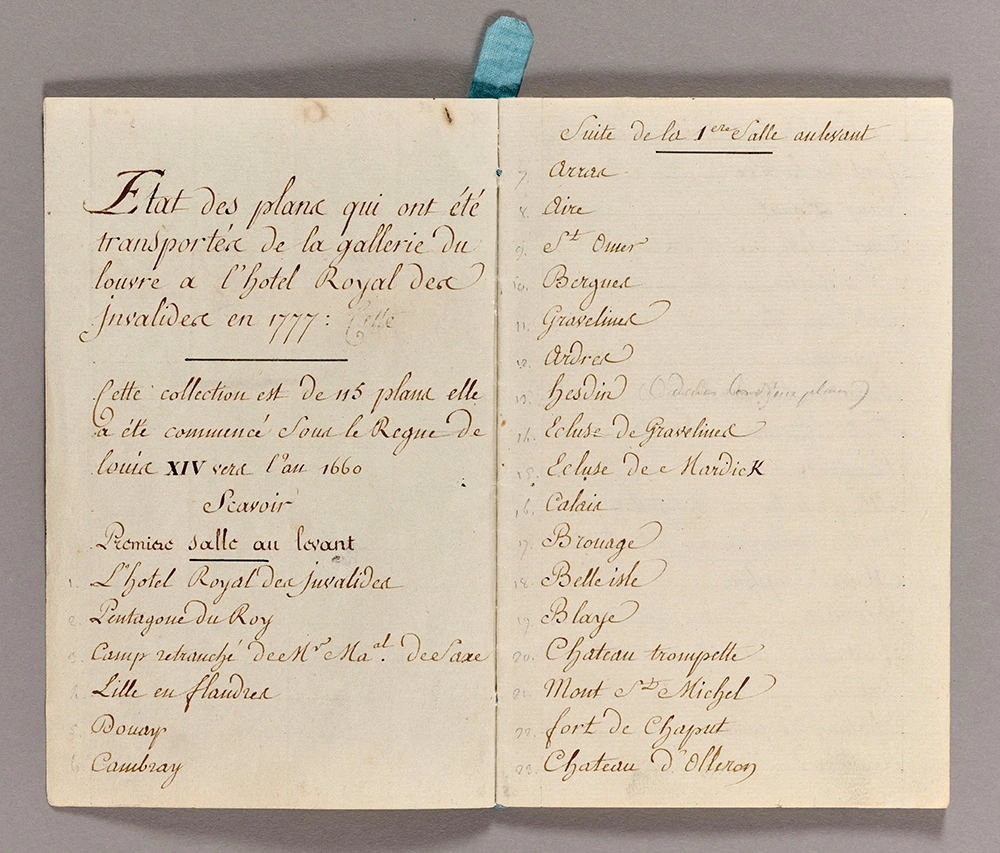 Etat des plans qui ont été
transportés de la gallerie du
louvre a l'hotel Royal des
Jnvalides en 1777: Cette
Cette collection est de 115 plans elle
a été commencé Sous le Regne de
louis XIV vers l'an 1660
Scavoir
Premiere salle au levant
1. L'hotel Royal des jnvalides
2. Pentagone du Roy
3. Camp retranché de Mr Maal. de Saxe
4. Lille en flandres
5. Douay
6. Cambray
Suite de la 1ere Salle au levant
7. Arras
8. Aire
9. St Omer
10. Bergues
11. Gravelines
12. Ardres
13. hesdin
14. Ecluse de Gravelines
15. Ecluse de Mardick
16. Calais
17. Brouage
18. Belle isle
19. Blaye
20. Chateau trompette
21. Mont St Michel
22. fort de Chaput
23. Chateau d'Olleron